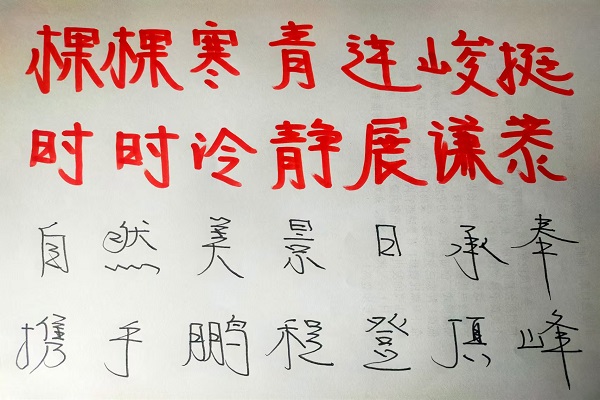 棵棵寒青连峻挺
时时冷静展谦恭
自然美景日承奉
携手鹏程登顶峰